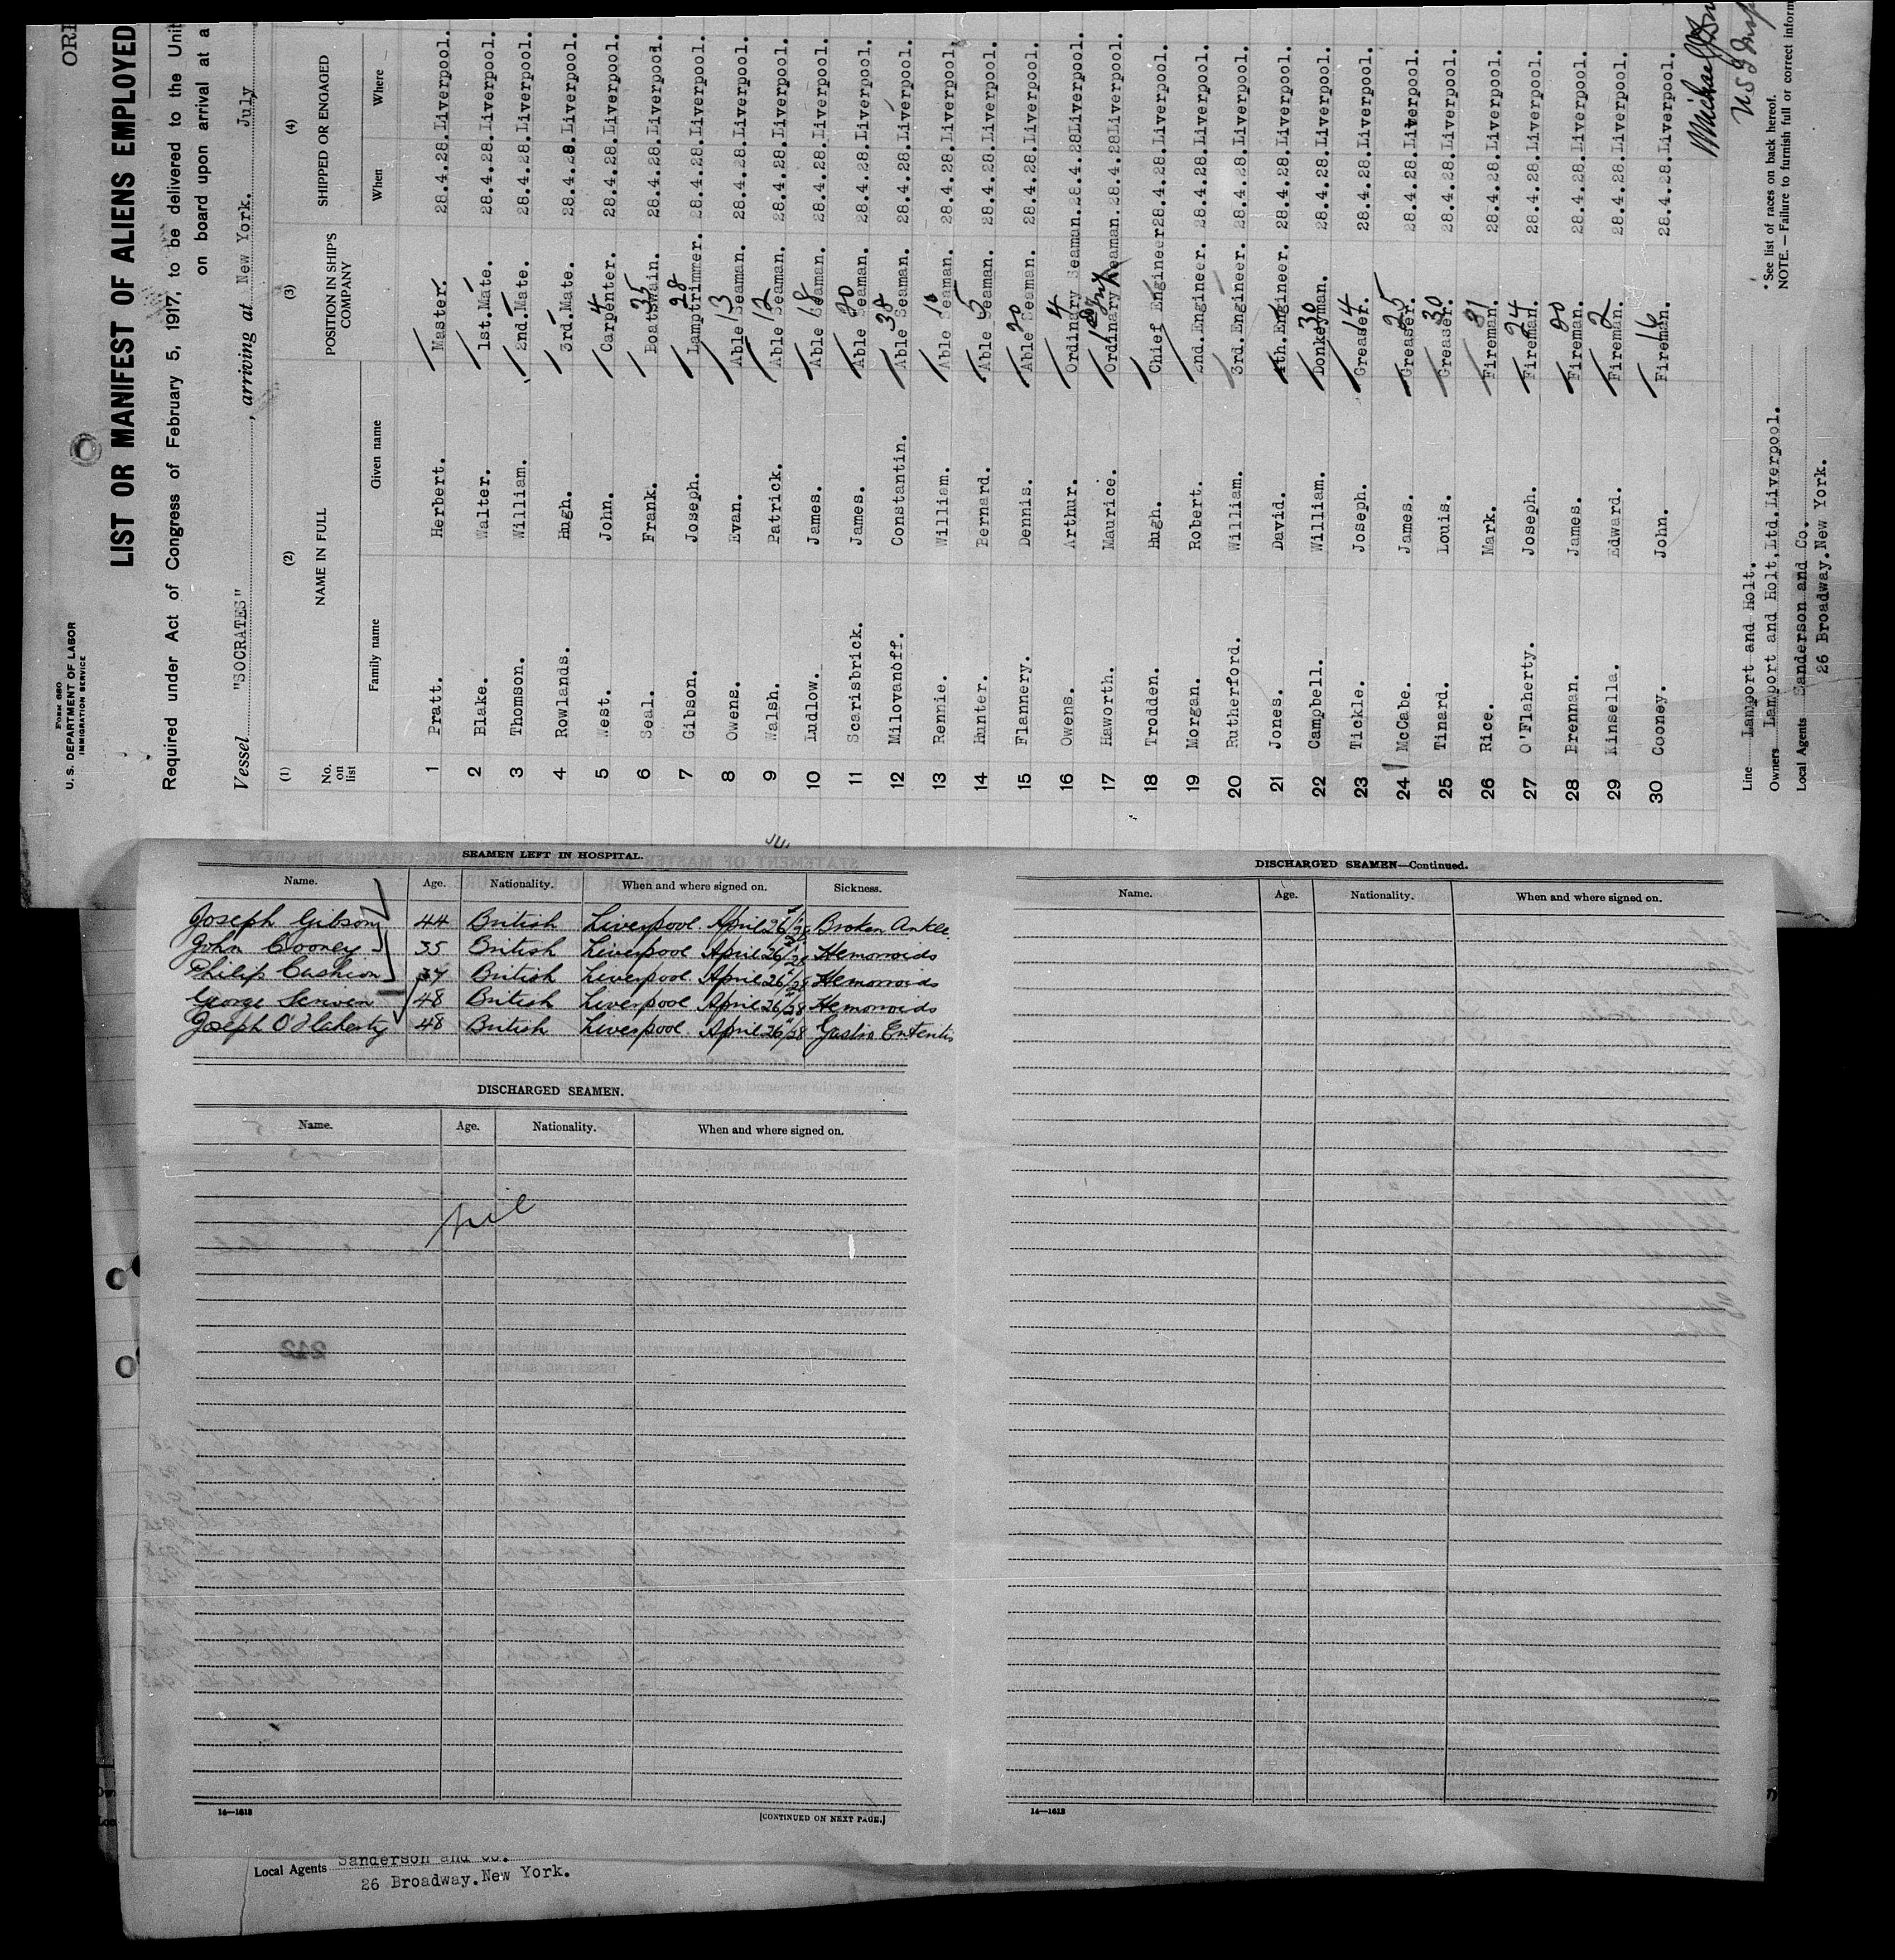 ORI
FORM 680
U. S. DEPARTMENT OF LABOR
IMMIGRATION SERVICE
LIST OR MANIFEST OF ALIENS EMPLOYED
Required under Act of Congress of February 5, 1917, to be delivered to the Unit
on board upon arrival at a
Vessel "SOCRATES", arriving at New York. July
(1) (2) (3) (4)
No. on list NAME IN FULL POSITION IN SHIP'S COMPANY SHIPPED OR ENGAGED
Family name Given name When Where
1 Pratt. Herbert. Master. 28.4.28. Liverpool.
2 Blake. Walter. 1st.Mate. 28.4.28. Liverpool.
3 Thomson. William. 2nd.Mate. 28.4.28. Liverpool.
4 Rowlands. Hugh. 3rd.Mate. 28.4.28. Liverpool.
5 West. John. Carpenter. 4 28.4.28. Liverpool.
6 Seal. Frank. Boatswain. 35 28.4.28. Liverpool.
7 Gibson. Joseph. Lamptrimmer. 28 28.4.28. Liverpool.
8 Owens. Evan. Able Seaman. 13 28.4.28. Liverpool.
9 Walsh. Patrick. Able Seaman. 12 28.4.28. Liverpool.
10 Ludlow. James. Able Seaman. 18 28.4.28. Liverpool.
11 Scarisbrick. James. Able Seaman. 20 28.4.28. Liverpool.
12 Milovanoff. Constantin. Able Seaman. 38 28.4.28. Liverpool.
13 Rennie. William. Able Seaman. 10 28.4.28. Liverpool.
14 Hunter. Bernard. Able Seaman. 5 28.4.28. Liverpool.
15 Flannery. Dennis. Able Seaman. 20 28.4.28. Liverpool.
16 Owens. Arthur. Ordinary Seaman. 4 28.4.28 Liverpool.
17 Haworth. Maurice. Ordinary Seaman. 28.4.28 Liverpool.
18 Trodden. Hugh. Chief Engineer 28.4.28. Liverpool.
19 Morgan. Robert. 2nd.Engineer. 28.4.28. Liverpool.
20 Rutherford. William. 3rd.Engineer. 28.4.28. Liverpool.
21 Jones. David. 4th.Engineer. 28.4.28. Liverpool.
22 Campbell. William. Donkeyman. 30 28.4.28. Liverpool.
23 Tickle. Joseph. Greaser. 14 28.4.28. Liverpool.
24 McCabe. James. Greaser. 25 28.4.28. Liverpool.
25 Tinard. Louis. Greaser. 30 28.4.28. Liverpool.
26 Rice. Mark. Fireman. 31 28.4.28. Liverpool.
27 O'Flaherty. Joseph. Fireman. 24 28.4.28. Liverpool.
28 Brennan. James. Fireman. 20 28.4.28. Liverpool.
29 Kinsella. Edward. Fireman. 2 28.4.28. Liverpool.
30 Cooney. John. Fireman. 16 28.4.28. Liverpool.
Line Lamport and Holt.
Owners Lamport and Holt, Ltd. Liverpool.
Local Agents Sanderson and Co.
26 Broadway. New York.
* See list of races on back hereof.
NOTE. — Failure to furnish full or correct inform
SEAMEN LEFT IN HOSPITAL.
Name. Age. Nationality. When and where signed on. Sickness.
Joseph Gibson 44 British Liverpool April 26/28 Broken Ankle
John Cooney 35 British Liverpool April 26/28 Hemorroids
Philip Cashion 37 British Liverpool April 26/28 Hemorroids
George Scriven 48 British Liverpool April 26/28 Hemorroids
Joseph O'Flaherty 48 British Liverpool April 26/28 Gastro Enteritis
DISCHARGED SEAMEN.
Name. Age. Nationality. When and where signed on.
Nil
14—1613 [CONTINUED ON NEXT PAGE.]
DISCHARGED SEAMEN—Continued.
Name. Age. Nationality. When and where signed on.
14—1613
Local Agents Sanderson and Co.
26 Broadway. New York.